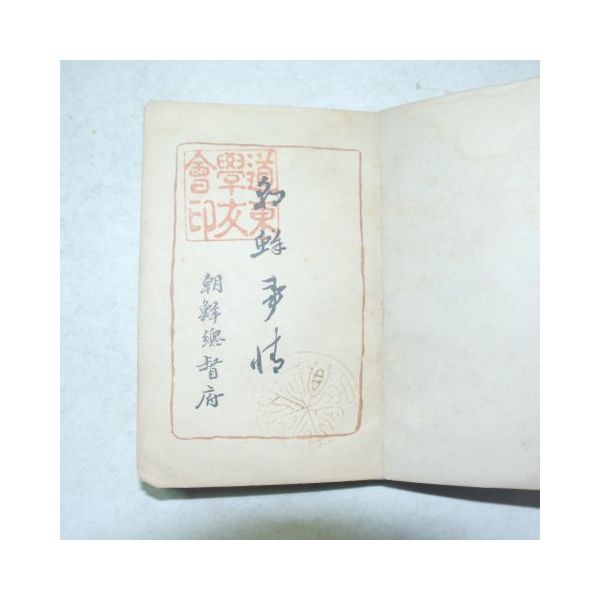 朝鮮事情
朝鮮總督府
道東
學友
會印